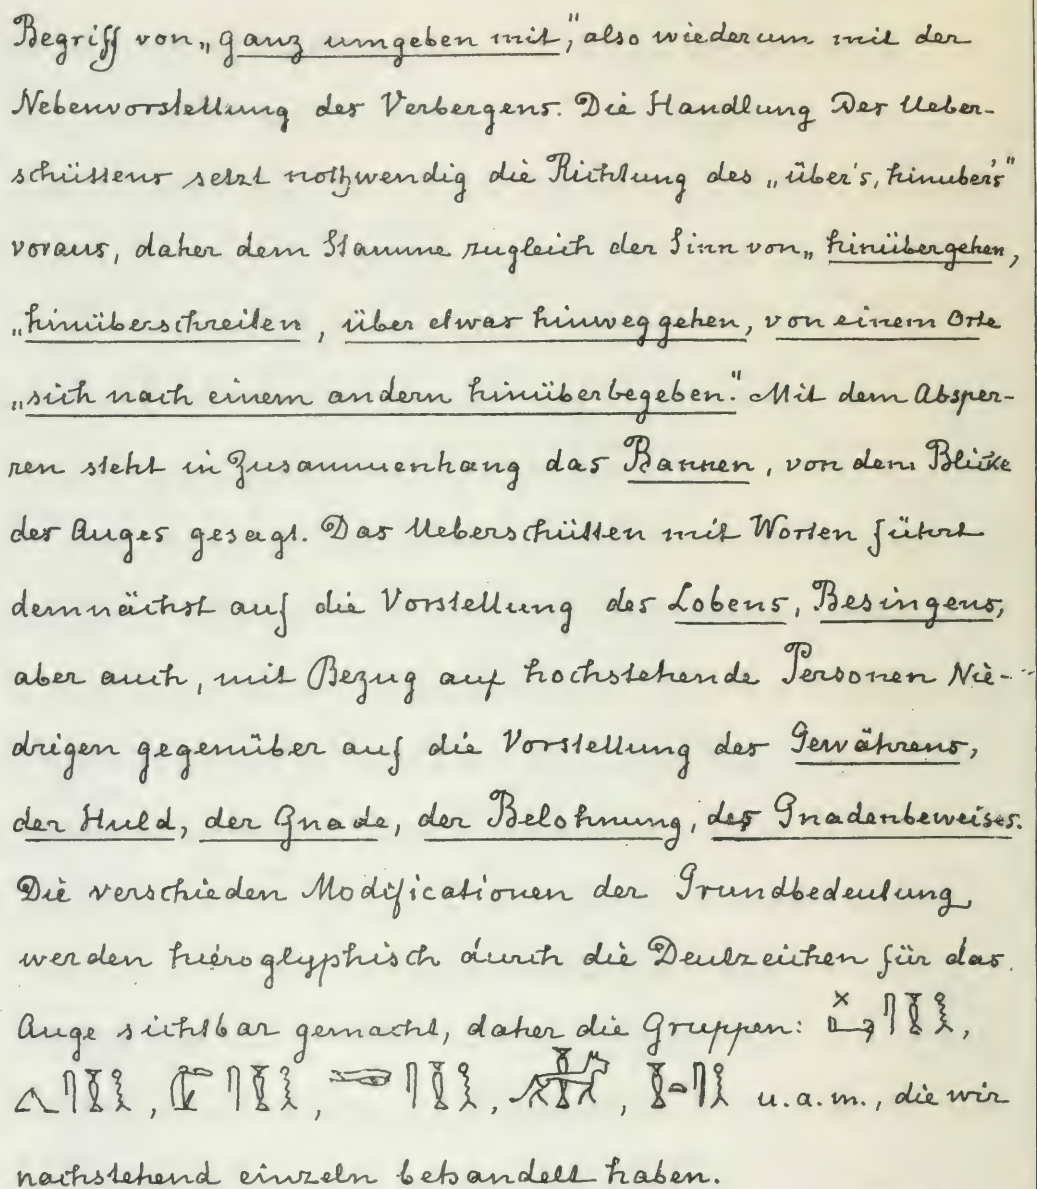 Begriff von „ganz umgeben mit“, also wiederum mit der
Nebenvorstellung des Verbergens. Die Handlung des Ueber-
schüttens setzt nothwendig die Richtung des „über's, hinüber's“
voraus, daher dem Stamme zugleich der Sinn von „hinübergehen,
„hinüberschreiten, über etwas hinweg gehen, von einem Orte
„sich nach einem andern hinüberbegeben.“ Mit dem Absper-
ren steht in Zusammenhang das Bannen, von dem Blicke
des Auges gesagt. Das Ueberschütten mit Worten führt
demnächst auf die Vorstellung des Lobens, Besingens,
aber auch, mit Bezug auf hochstehende Personen Nie-
drigen gegenüber auf die Vorstellung des Gewährens,
der Huld, der Gnade, der Belohnung, des Gnadenbeweises.
Die verschieden Modificationen der Grundbedeutung
werden hieroglyphisch durch die Deutzeichen für das
Auge sichtbar gemacht, daher die Gruppen:
u. a. m., die wir
nachstehend einzeln behandelt haben.